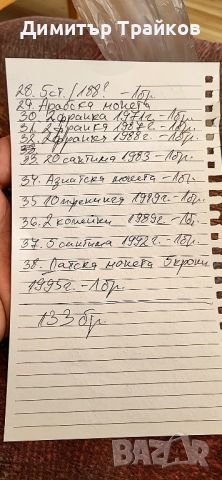 Димитър Трайков
28. 5ст. / 188? - 1бр.
29. Арабска монета
30. 2 франка 1971г. - 1бр.
31. 2 франка 1987г. - 1бр.
32. 2 франка 1988г. - 1бр.
33
33. 20 сантима 1983 - 1бр.
34. Азиатска монета - 1бр.
35 10 пфенинга 1989г. - 1бр.
36. 2 копейки 1989г. - 1бр.
37. 5 сантима 1992г. - 1бр.
38. Датска монета 5 крони
1995г. - 1бр.
133 бр.
BAZAR
bg